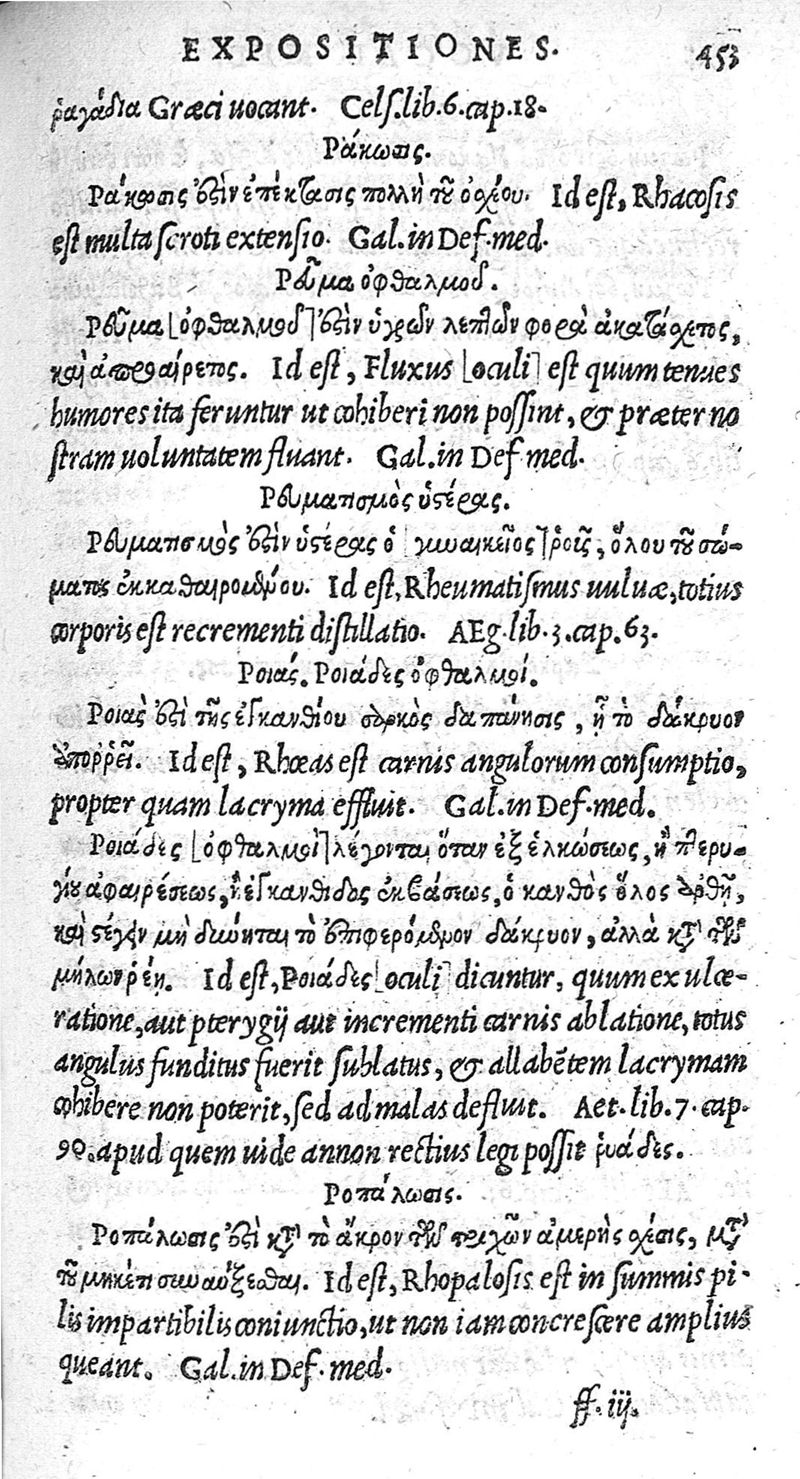 EXPOSITIONES. 453
ῥαγάδια Græci uocant. Cels. lib. 6. cap. 18.
Ράκωσις.
Ράκωσις ἐστὶν ἐπέκτασις πολλὴ τοῦ ὀχέου. Id est, Rhacosis
est multa scroti extensio. Gal. in Def. med.
Ρεῦμα ὀφθαλμοῦ.
Ρεῦμα [ὀφθαλμοῦ] ἐστὶν ὑγρῶν λεπτῶν φορὰ ἀκατάσχετος,
καὶ ἀπροαίρετος. Id est, Fluxus [oculi] est quum tenues
humores ita feruntur ut cohiberi non possint, & præter no
stram uoluntatem fluant. Gal. in Def med.
Ρευματισμὸς ὑστέρας.
Ρευματισμὸς ἐστὶν ὑστέρας ὁ [γυναικεῖος] ῥοῦς, ὅλου τοῦ σώ-
ματος ἐκκαθαιρομένου. Id est, Rheumatismus uuluæ, totius
corporis est recrementi distillatio. AEg. lib. 3. cap. 63.
Ροιάς. Ροιάδες ὀφθαλμοί.
Ροιὰς ἐστὶ τῆς ἐγκανθίου σαρκὸς δαπάνησις, ᾗ τὸ δάκρυον
ἀποῤῥεῖ. Id est, Rhœas est carnis angulorum consumptio,
propter quam lacryma effluit. Gal. in Def. med.
Ροιάδες [ὀφθαλμοὶ] λέγονται ὅταν ἐξ ἑλκώσεως, ἢ πτερυ-
γίου ἀφαιρέσεως, ἢ ἐγκανθίδος ἐκβάσεως, ὁ κανθὸς ὅλος ἀρθῇ,
καὶ στέγειν μὴ δύνηται τὸ ἐπιφερόμενον δάκρυον, ἀλλὰ κατὰ τῶν
μήλων ῥέῃ. Id est, Ροιάδες [oculi] dicuntur, quum ex ulce-
ratione, aut pterygij aut incrementi carnis ablatione, totus
angulus funditus fuerit sublatus, & allabẽtem lacrymam
cohibere non poterit, sed ad malas defluit. Aet. lib. 7. cap.
90. apud quem uide annon rectius legi possit ῥυάδες.
Ροπάλωσις.
Ροπάλωσις ἐστὶ κατὰ τὸ ἄκρον τῶν τριχῶν ἀμερὴς σχέσις, μετὰ
τοῦ μηκέτι συναύξεσθαι. Id est, Rhopalosis est in summis pi-
lis impartibilis coniunctio, ut non iam concrescere amplius
queant. Gal. in Def. med.
ff. iij.